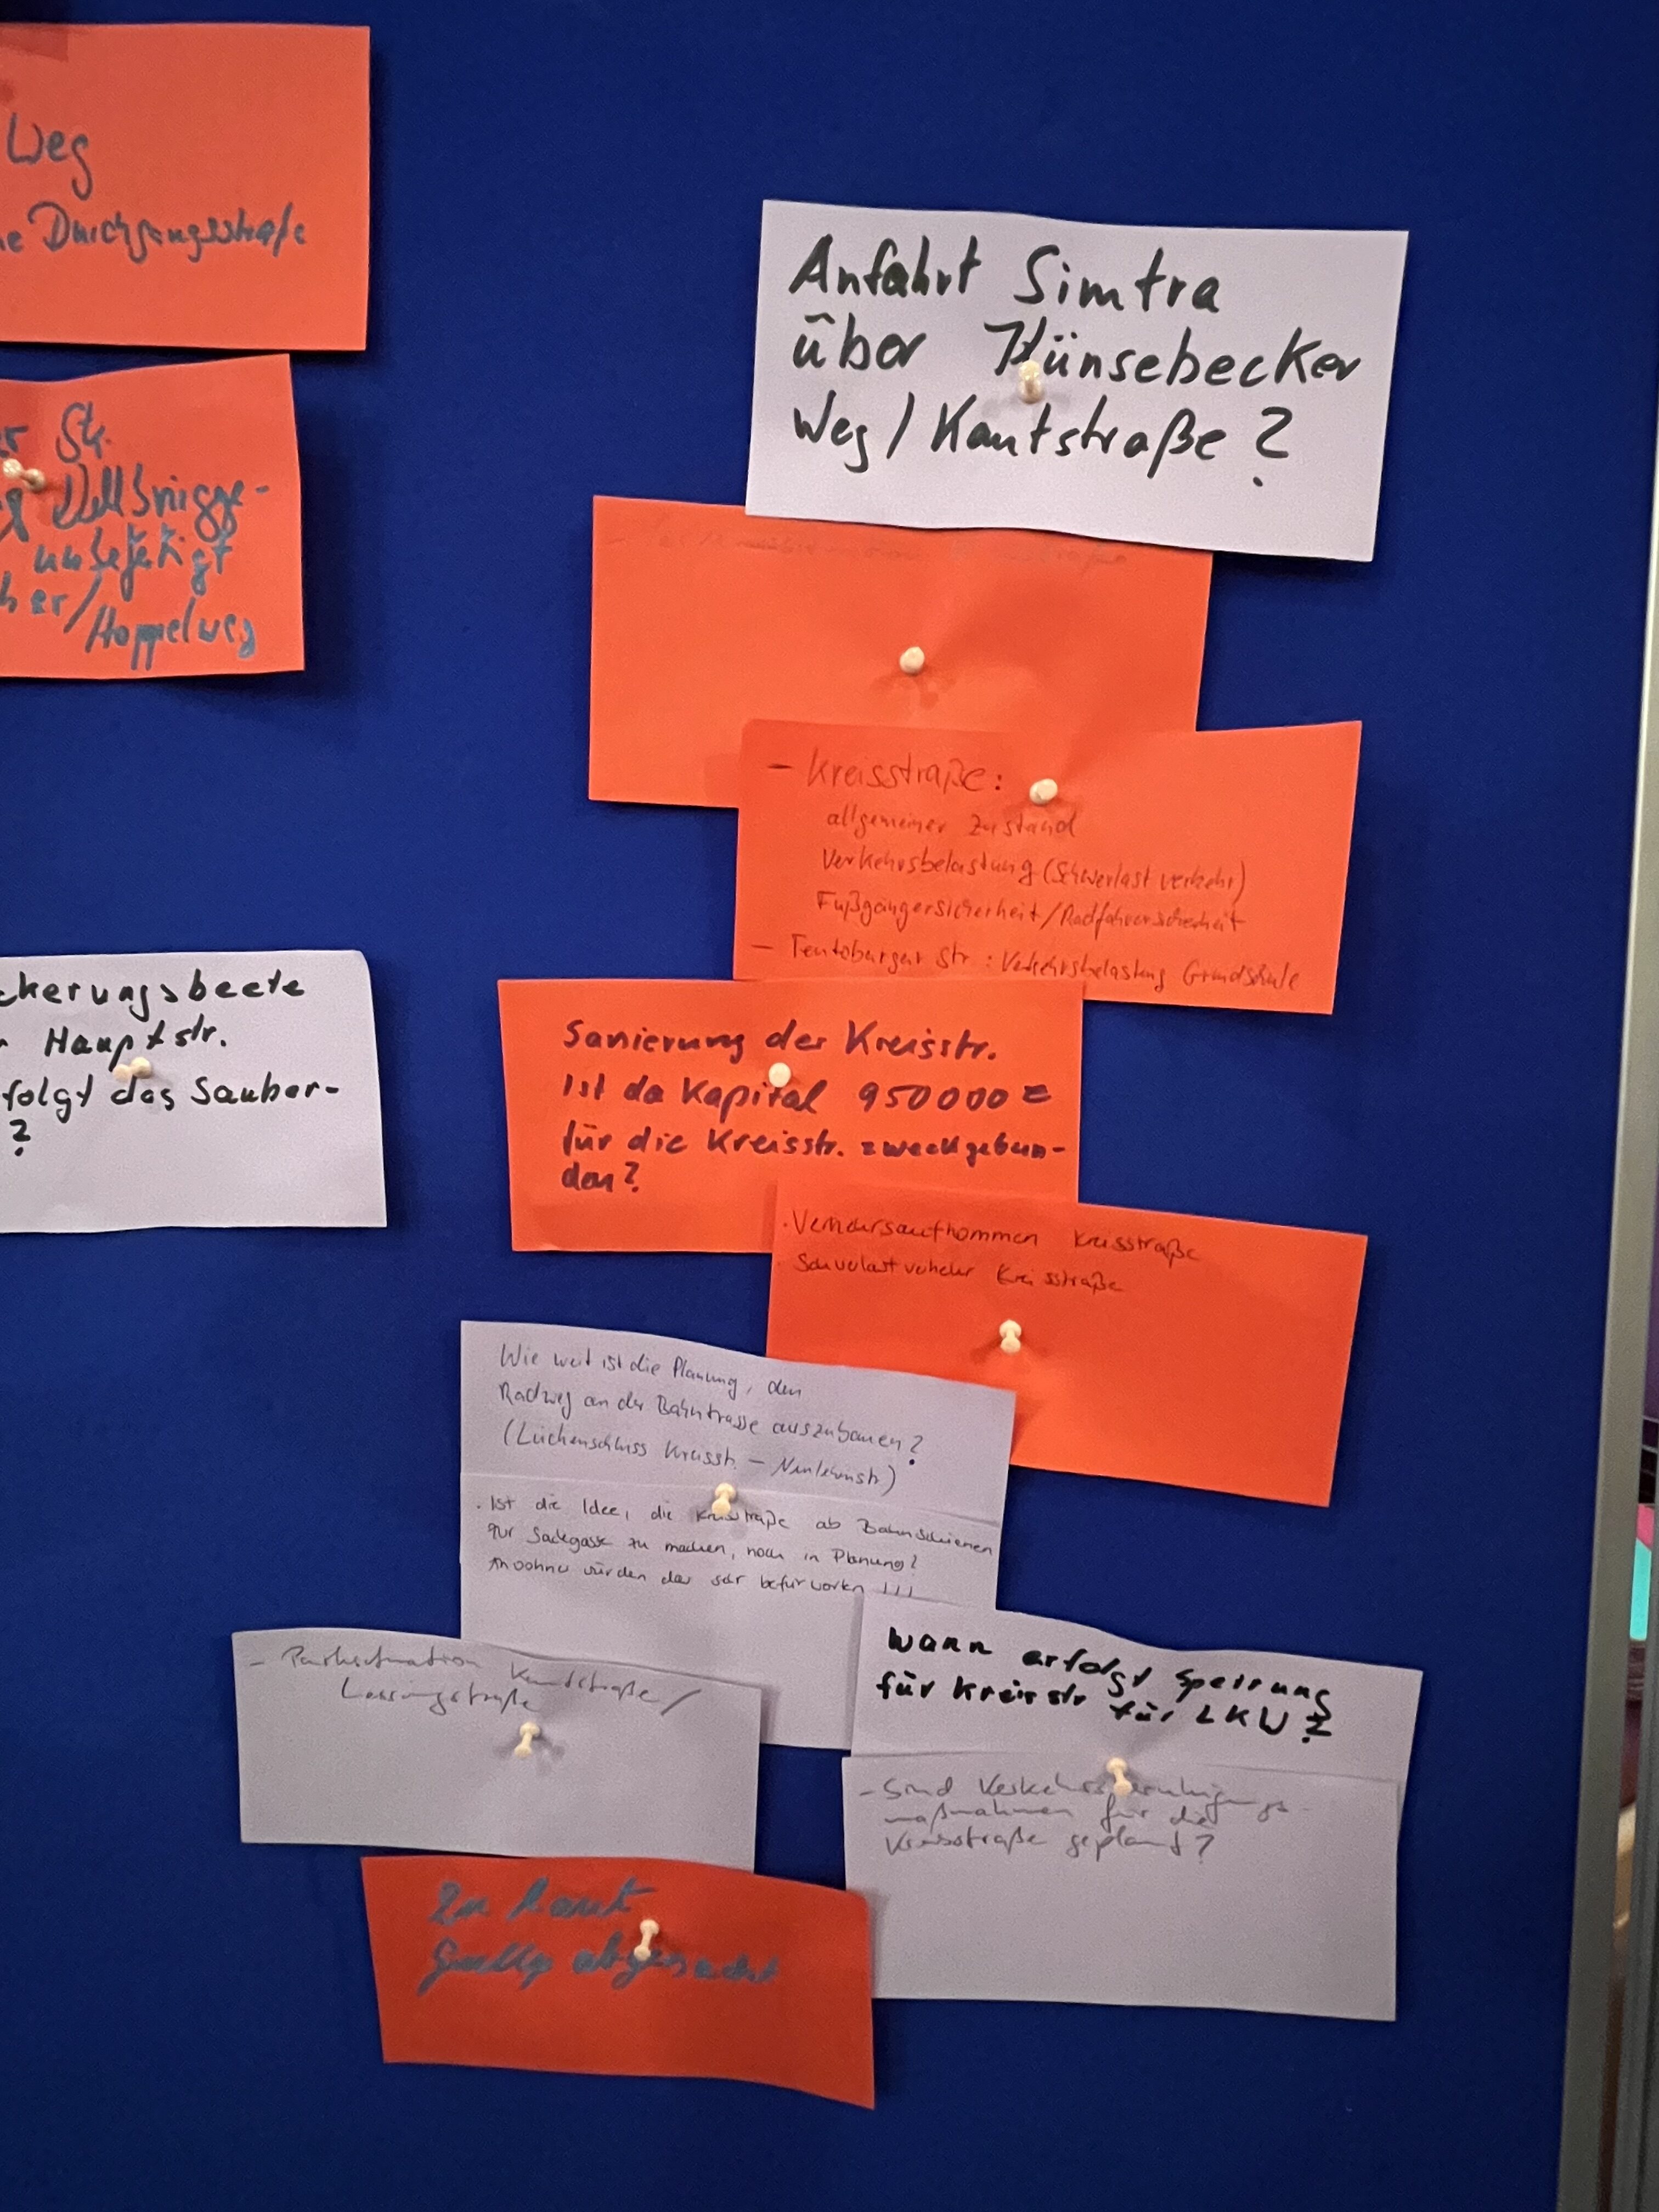 Weg
Durchgangsstraße
Str.
unbefestigt
Hoppelweg
ckerungsbeete
Hauptstr.
folgt das Sauber-
?
Anfahrt Simtra
über Künsebecker
Weg / Kantstraße?
- Kreisstraße:
allgemeiner Zustand
Verkehrsbelastung (Schwerlastverkehr)
Fußgängersicherheit/Radfahrersicherheit
- Teutoburger Str: Verkehrsbelastung Grundschule
Sanierung der Kreisstr.
Ist da Kapital 950000 €
für die Kreisstr. zweckgebun-
den?
. Verkehrsaufkommen Kreisstraße
Schwerlastverkehr Kreisstraße
Wie weit ist die Planung, den
Radweg an der Bahntrasse auszubauen?
(Lückenschluss Kreisstr. -
. Ist die Idee, die Kreisstraße ab Bahnschienen
zur Sackgasse zu machen, noch in Planung?
Anwohner würden das sehr befürworten !!!
- Parksituation Kantstraße/
Lessingstraße
Wann erfolgt Sperrung
für Kreisstr für LKW?
- Sind Verkehrsberuhigungs-
maßnahmen für die
Kreisstraße geplant?